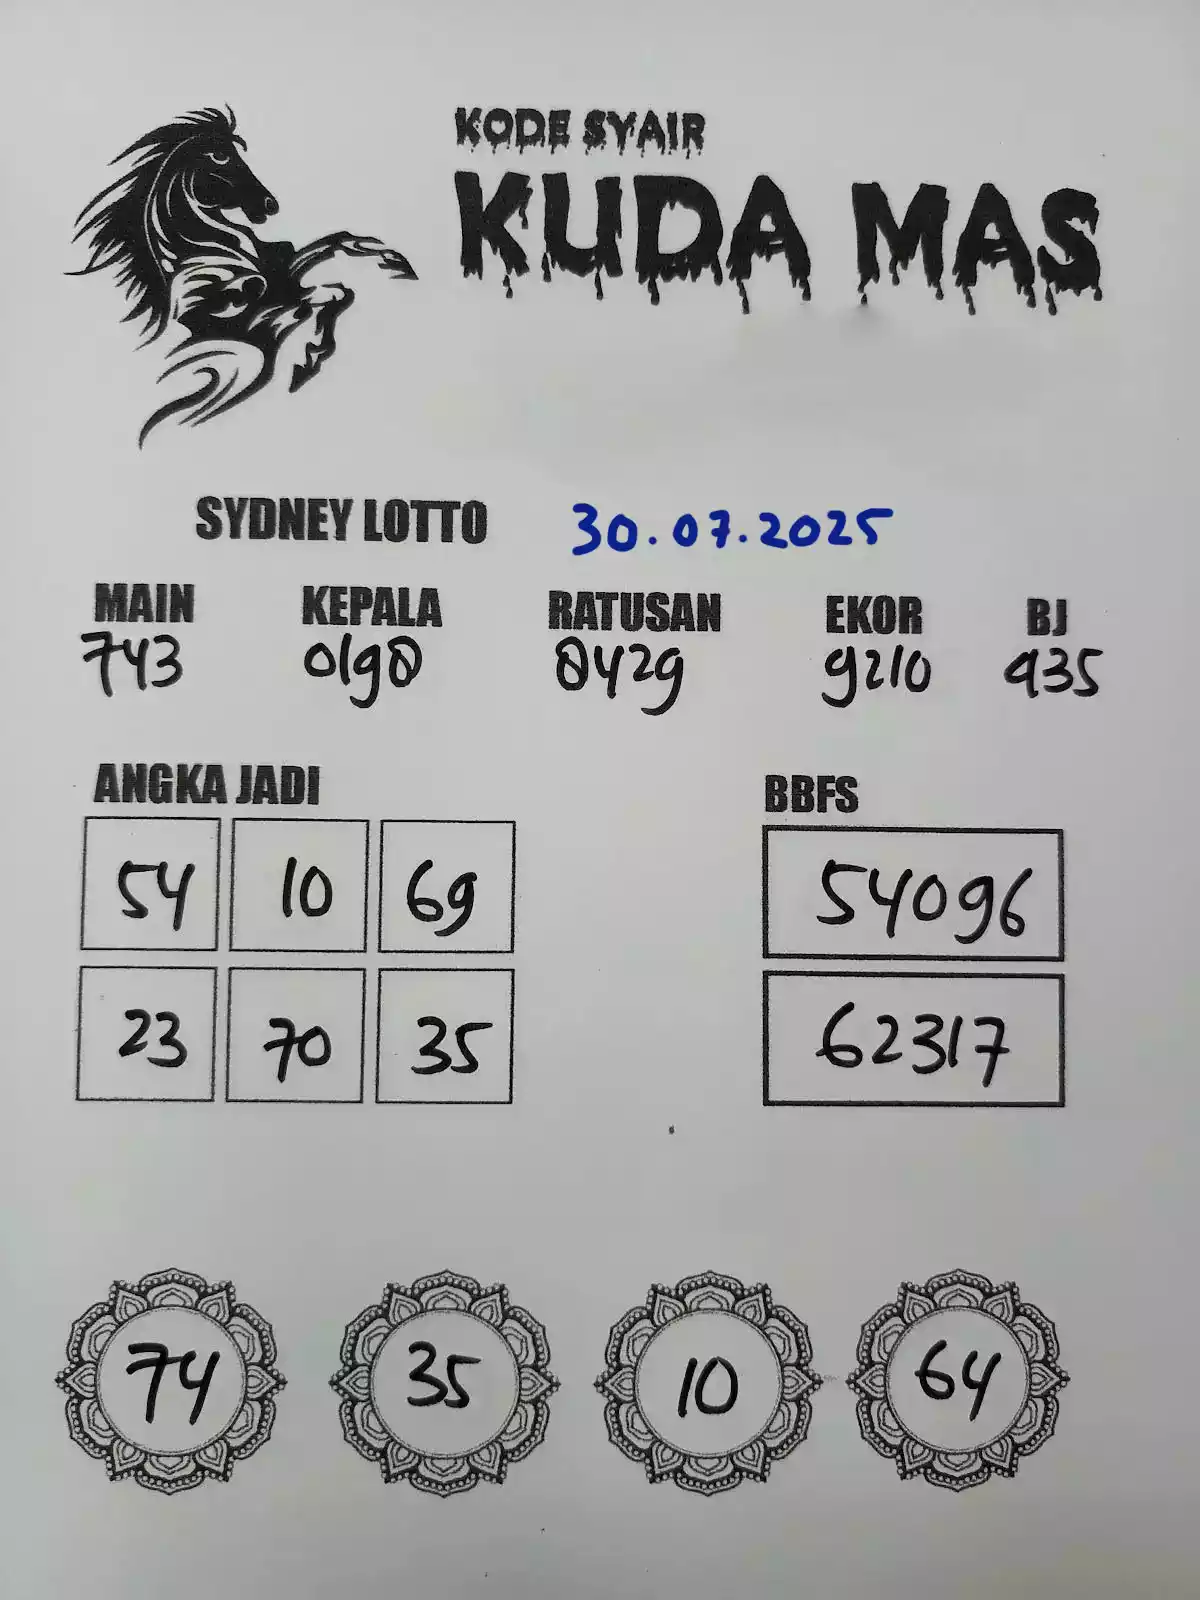 KODE SYAIR
KUDA MAS
SYDNEY LOTTO 30.07.2025
MAIN KEPALA RATUSAN EKOR BJ
743 0198 8429 9210 935
ANGKA JADI BBFS
54 10 69 54096
23 70 35 62317
74 35 10 64